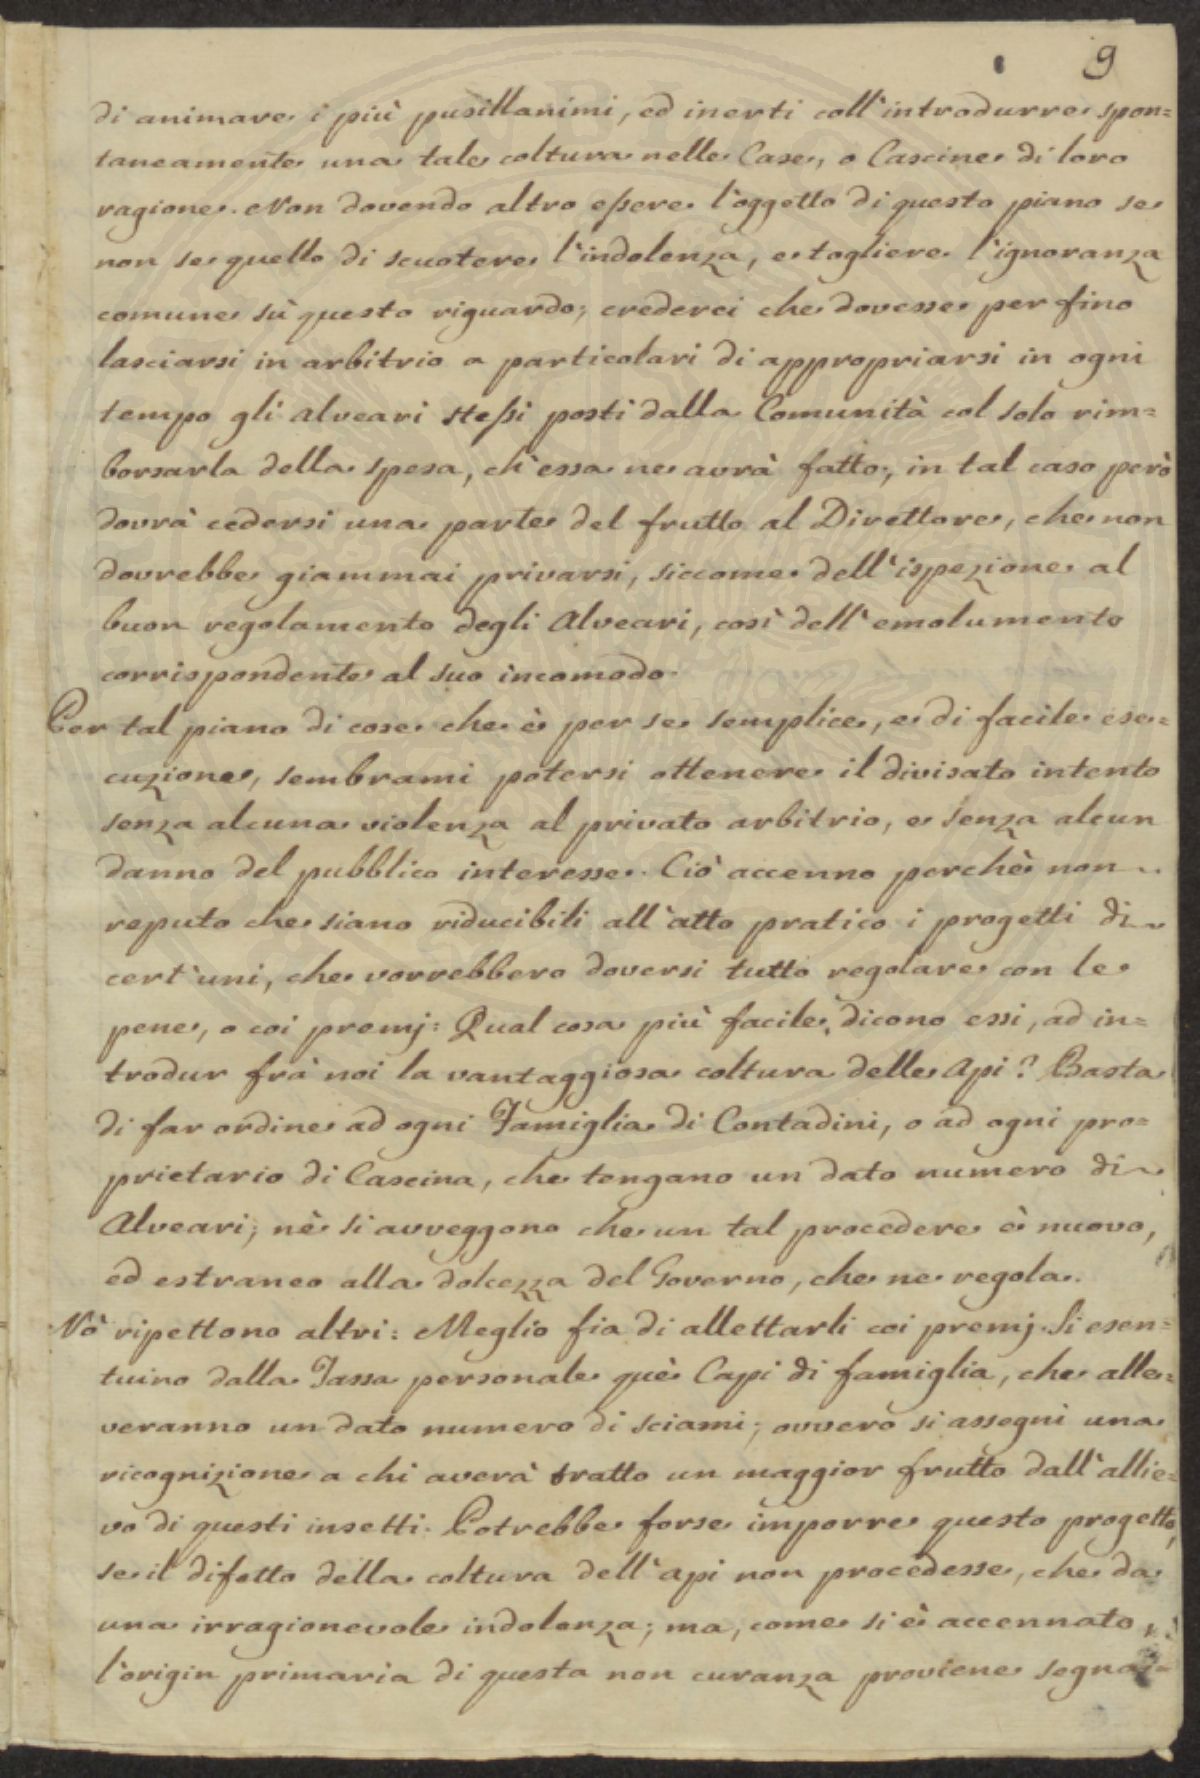 9
di animare i più pusillanimi, ed inerti coll'introdurre spon=
taneamente una tale coltura nelle Case, o Cascine di loro
ragione. Non dovendo altro essere l'oggetto di questo piano se
non se quello di scuotere l'indolenza, e togliere l'ignoranza
comune sù questo riguardo; crederei che dovesse per fino
lasciarsi in arbitrio a particolari di appropriarsi in ogni
tempo gli alveari stessi posti dalla Comunità col solo rim=
borsarla della spesa, ch'essa ne avrà fatto; in tal caso però
dovrà cedersi una parte del frutto al Direttore, che non
dovrebbe giammai privarsi, siccome dell'ispezione al
buon regolamento degli Alveari, così dell'emolumento
corrispondente al suo incomodo.
Per tal piano di cose che è per se semplice, e di facile ese=
cuzione, sembrami potersi ottenere il divisato intento
senza alcuna violenza al privato arbitrio, e senza alcun
danno del pubblico interesse. Ciò accenno perchè non
reputo che siano riducibili all'atto pratico i progetti di
cert'uni, che vorrebbero doversi tutto regolare con le
pene, o coi premj: Qual cosa più facile, dicono essi, ad in=
trodur frà noi la vantaggiosa coltura delle Api? Basta
di far ordine ad ogni Famiglia di Contadini, o ad ogni pro=
prietario di Cascina, che tengano un dato numero di
Alveari; nè si avveggono che un tal procedere è nuovo,
ed estraneo alla dolcezza del Governo, che ne regola.
Nò ripettono altri: Meglio fia di allettarli coi premj. Si esen=
tuino dalla Tassa personale què Capi di famiglia, che alle=
veranno un dato numero di sciami; ovvero si assegni una
ricognizione a chi averà tratto un maggior frutto dall'allie=
vo di questi insetti. Potrebbe forse imporre questo progetto,
se il difetto della coltura dell'api non procedesse, che da
una irragionevole indolenza; ma, come si è accennato,
l'origin primaria di questa non curanza proviene segna=